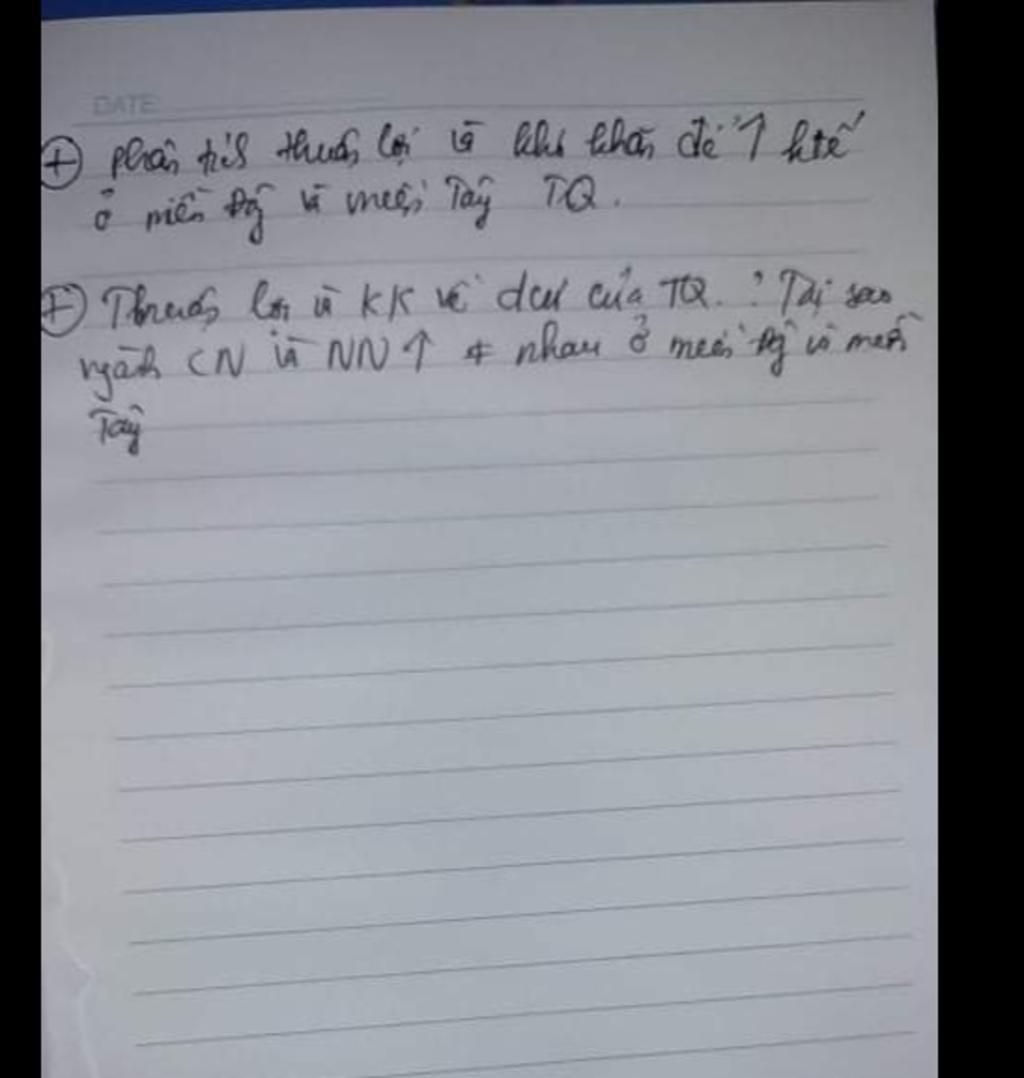 DATE
+ phân tích thuận lợi và khó khăn để ↑ ktế
ở miền Đg và miền Tây TQ.
+ Thuận lợi và KK về dcư của TQ. Tại sao
ngành CN và NN ↑ ≠ nhau ở miền Đg và miền
Tây